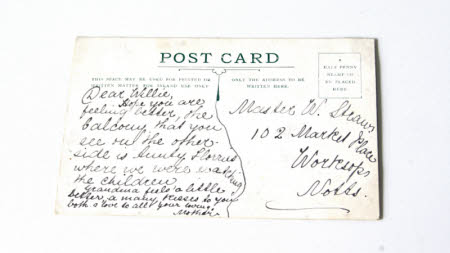 POST CARD
THIS SPACE MAY BE USED FOR PRINTED OR
WRITTEN MATTER FOR INLAND USE ONLY
ONLY THE ADDRESS TO BE
WRITTEN HERE.
A
HALF PENNY
STAMP TO
BE PLACED
HERE
Dear Willie,
Hope you are
feeling better, the
balcony that you
see on the other
side is Aunty
where we were watching
the children.
Grandma feels a little
better, a many kisses to you
both & love to all your loving
Mother
Master W. Straw
102 Market Place
Worksop
Notts.